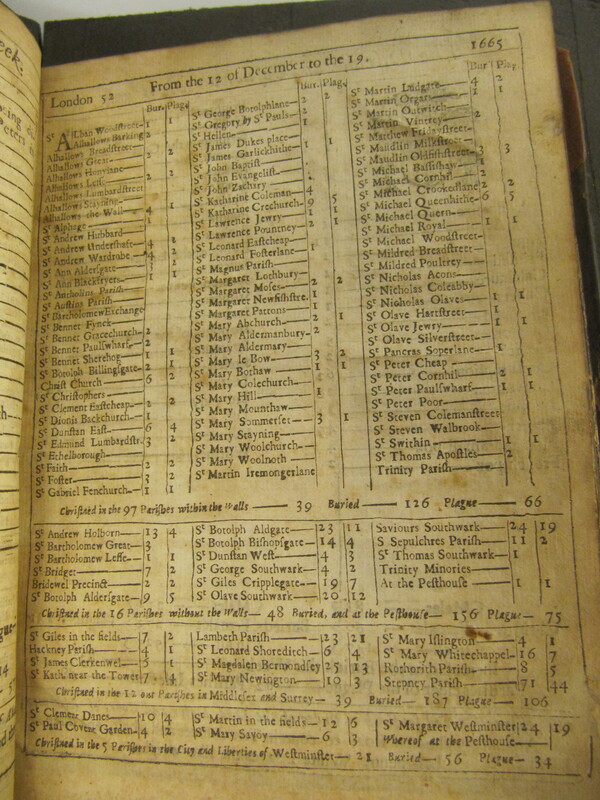 London 52 From the 12 of December to the 19. 1665
Bur. Plag.
St Alban Woodstreet 1 1
Alhallows Barking 2
Alhallows Breadstreet 1
Alhallows Great 2 2
Alhallows Honylane
Alhallows Lesse 2 2
Alhallows Lumbardstreet
Alhallows Stayning
Alhallows the Wall 4
St Alphage 1
St Andrew Hubbard
St Andrew Undershaft
St Andrew Wardrobe
St Ann Aldersgate
St Ann Blackfryers
St Antholins Parish
St Austins Parish
St Bartholomew Exchange
St Bennet Fynck
St Bennet Gracechurch 2
St Bennet Paulswharf 2
St Bennet Sherehog 1 1
St Botolph Billingsgate 2 1
Christ Church 6 2
St Christophers
St Clement Eastcheap 2 2
St Dionis Backchurch 1 1
St Dunstan East 6 4
St Edmund Lumbardstr. 3 2
St Ethelborough
St Faith 2 2
St Foster 3 2
St Gabriel Fenchurch 1 1
Bur. Plag.
St George Botolphlane 2
St Gregory by St Pauls
St Hellen
St James Dukes place
St James Garlickhithe
St John Baptist
St John Evangelist
St John Zachary
St Katharine Coleman 4
St Katharine Crechurch 9 5
St Lawrence Jewry 1 1
St Lawrence Pountney 2
St Leonard Eastcheap
St Leonard Fosterlane 1
St Magnus Parish
St Margaret Lothbury 2 2
St Margaret Moses
St Margaret Newfishstre.
St Margaret Pattons
St Mary Abchurch
St Mary Aldermanbury
St Mary Aldermary
St Mary le Bow 3 2
St Mary Bothaw 1 1
St Mary Colechurch
St Mary Hill 1
St Mary Mounthaw
St Mary Sommerset 3 1
St Mary Stayning
St Mary Woolchurch
St Mary Woolnoth
St Martin Iremongerlane
Bur. Plag
St Martin Ludgate 4 2
St Martin Organs 1 1
St Martin Outwitch
St Martin Vintrey 2
St Matthew Fridaystreet
St Maudlin Milkstreet
St Maudlin Oldfishstreet 3 3
St Michael Bassishaw 1
St Michael Cornhil
St Michael Crookedlane 2 2
St Michael Queenhithe 6 5
St Michael Quern
St Michael Royal 1 1
St Michael Woodstreet
St Mildred Breadstreet
St Mildred Poultrey
St Nicholas Acons
St Nicholas Coleabby
St Nicholas Olaves 1 1
St Olave Hartstreet
St Olave Jewry 1 1
St Olave Silverstreet
St Pancras Soperlane 1
St Peter Cheap 1
St Peter Cornhil 2 1
St Peter Paulswharf 1 1
St Peter Poor
St Steven Colemanstreet
St Steven Walbrook
St Swithin 1 1
St Thomas Apostles 2
Trinity Parish
Christned in the 97 Parishes within the Walls 39 Buried 126 Plague 66
St Andrew Holborn 13 4
St Bartholomew Great 3
St Bartholomew Lesse 1 1
St Bridget 7 2
Bridewel Precinct 2 2
St Botolph Aldersgate 9 5
St Botolph Aldgate 23 11
St Botolph Bishopsgate 14 4
St Dunstan West 4 3
St George Southwark 4 2
St Giles Cripplegate 19 7
St Olave Southwark 20 12
Saviours Southwark 24 19
S Sepulchres Parish 11 2
St Thomas Southwark 1
Trinity Minories
At the Pesthouse 1 1
Christned in the 16 Parishes without the Walls 48 Buried, and at the Pesthouse 156 Plague 75
St Giles in the fields 7 2
Hackney Parish 4 1
St James Clerkenwel 1
St Kath. near the Tower 7 4
Lambeth Parish 23 21
St Leonard Shoreditch 6 4
St Magdalen Bermondsey 25 13
St Mary Newington 10 3
St Mary Islington 4 1
St Mary Whitechappel 16 7
Rothorith Parish 8 5
Stepney Parish 71 44
Christned in the 12 out Parishes in Middlesex and Surrey 39 Buried 187 Plague 106
St Clement Danes 10 4
St Paul Covent Garden 4 2
St Martin in the fields 12 6
St Mary Savoy 6 3
St Margaret Westminster 24 19
Whereof at the Pesthouse
Christned in the 5 Parishes in the City and Liberties of Westminster 21 Buried 56 Plague 34